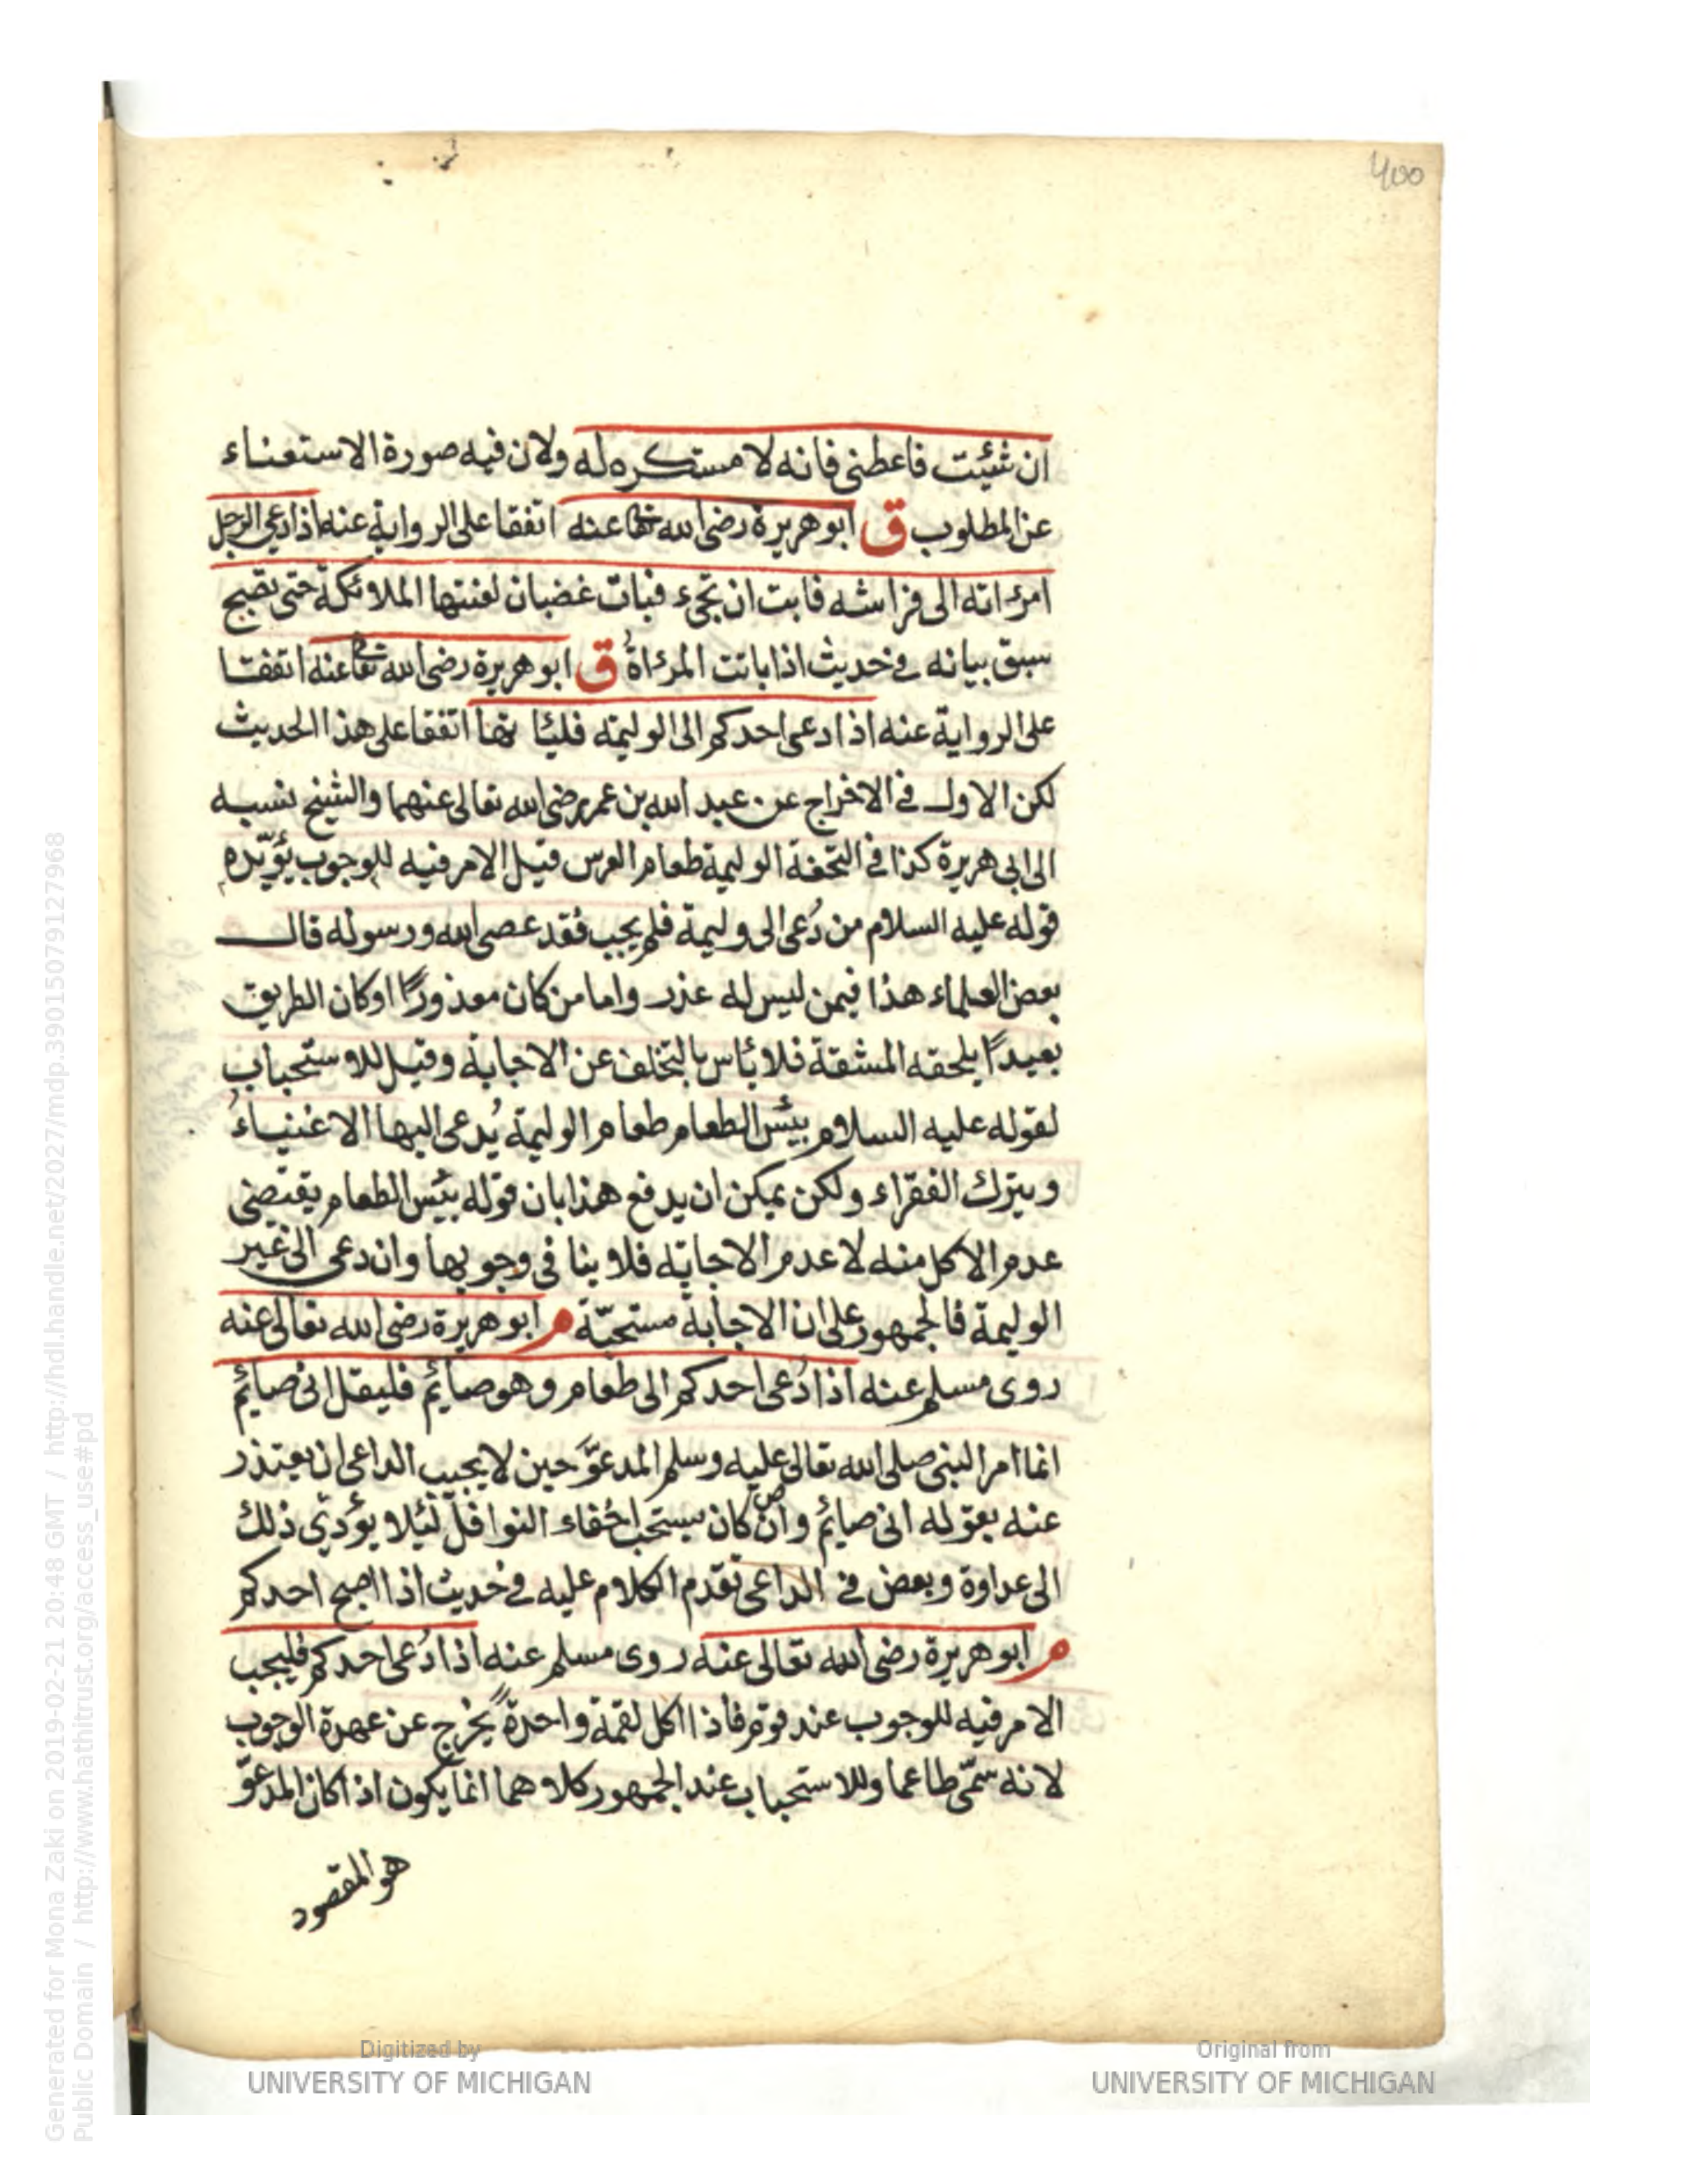 400
ان شئت فاعطنى فانه لا مستكره له ولان فيه صورة الاستغناء
عن المطلوب ق ابو هريرة رضى الله تعالى عنه اتفقا على الرواية عنه اذا دعى الرجل
امرءاته الى فراشه فابت ان تجىء فبات غضبان لعنتها الملائكة حتى تصبح
سبق بيانه فى حديث اذا باتت المرءاة ق ابو هريرة رضى الله تعالى عنه اتفقا
على الرواية عنه اذا دعى احدكم الى الوليمة فليأتها اتفقا على هذا الحديث
لكن الاول فى الاخراج عن عبد الله بن عمر رضى الله تعالى عنهما والشيخ نسبه
الى ابى هريرة كذا فى التحفة الوليمة طعام العرس قيل الامر فيه للوجوب يؤيّده
قوله عليه السلام من دُعى الى وليمة فلم يجب فقد عصى الله ورسوله قال
بعض العلماء هذا فيمن ليس له عذر واما من كان معذورًا او كان الطريق
بعيدًا يلحقه المشقة فلا بأس بالتخلف عن الاجابة وقيل للاستحباب
لقوله عليه السلام بئس الطعام طعام الوليمة يُدعى اليها الاغنياءُ
ويترك الفقراء ولكن يمكن ان يدفع هذا بان قوله بئس الطعام يقتضى
عدم الاكل منه لا عدم الاجابة فلا ينافى وجوبها وان دعى الى غير
الوليمة فالجمهور على ان الاجابة مستحبّة م ابو هريرة رضى الله تعالى عنه
روى مسلم عنه اذا دُعى احدكم الى طعام وهو صائم فليقل انى صائم
انما امر النبى صلى الله تعالى عليه وسلم المدعوَّ حين لا يجيب الداعى ان يعتذر
عنه بقوله انى صائم وان كان يستحب اخفاء النوافل لئلا يؤدّى ذلك
الى عداوة وبعض فى الداعى تقدم الكلام عليه فى حديث اذا اصبح احدكم
م ابو هريرة رضى الله تعالى عنه روى مسلم عنه اذا دُعى احدكم فليجب
الامر فيه للوجوب عند قوم فاذا اكل لقمة واحدة يخرج عن عهدة الوجوب
لانه سمّى طاعما وللاستحباب عند الجمهور كلاهما انما يكون اذا كان المدعوّ
هو المقصود
Generated for Mona Zaki on 2019-02-21 20:48 GMT / http://hdl.handle.net/2027/mdp.39015079127968
Public Domain / http://www.hathitrust.org/access_use#pd
Digitized by
UNIVERSITY OF MICHIGAN
Original from
UNIVERSITY OF MICHIGAN